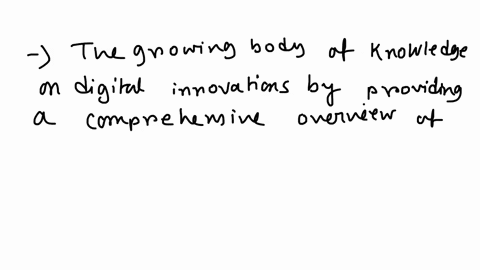 -> The growing body of knowledge
on digital innovations by providing
a comprehensive overview of